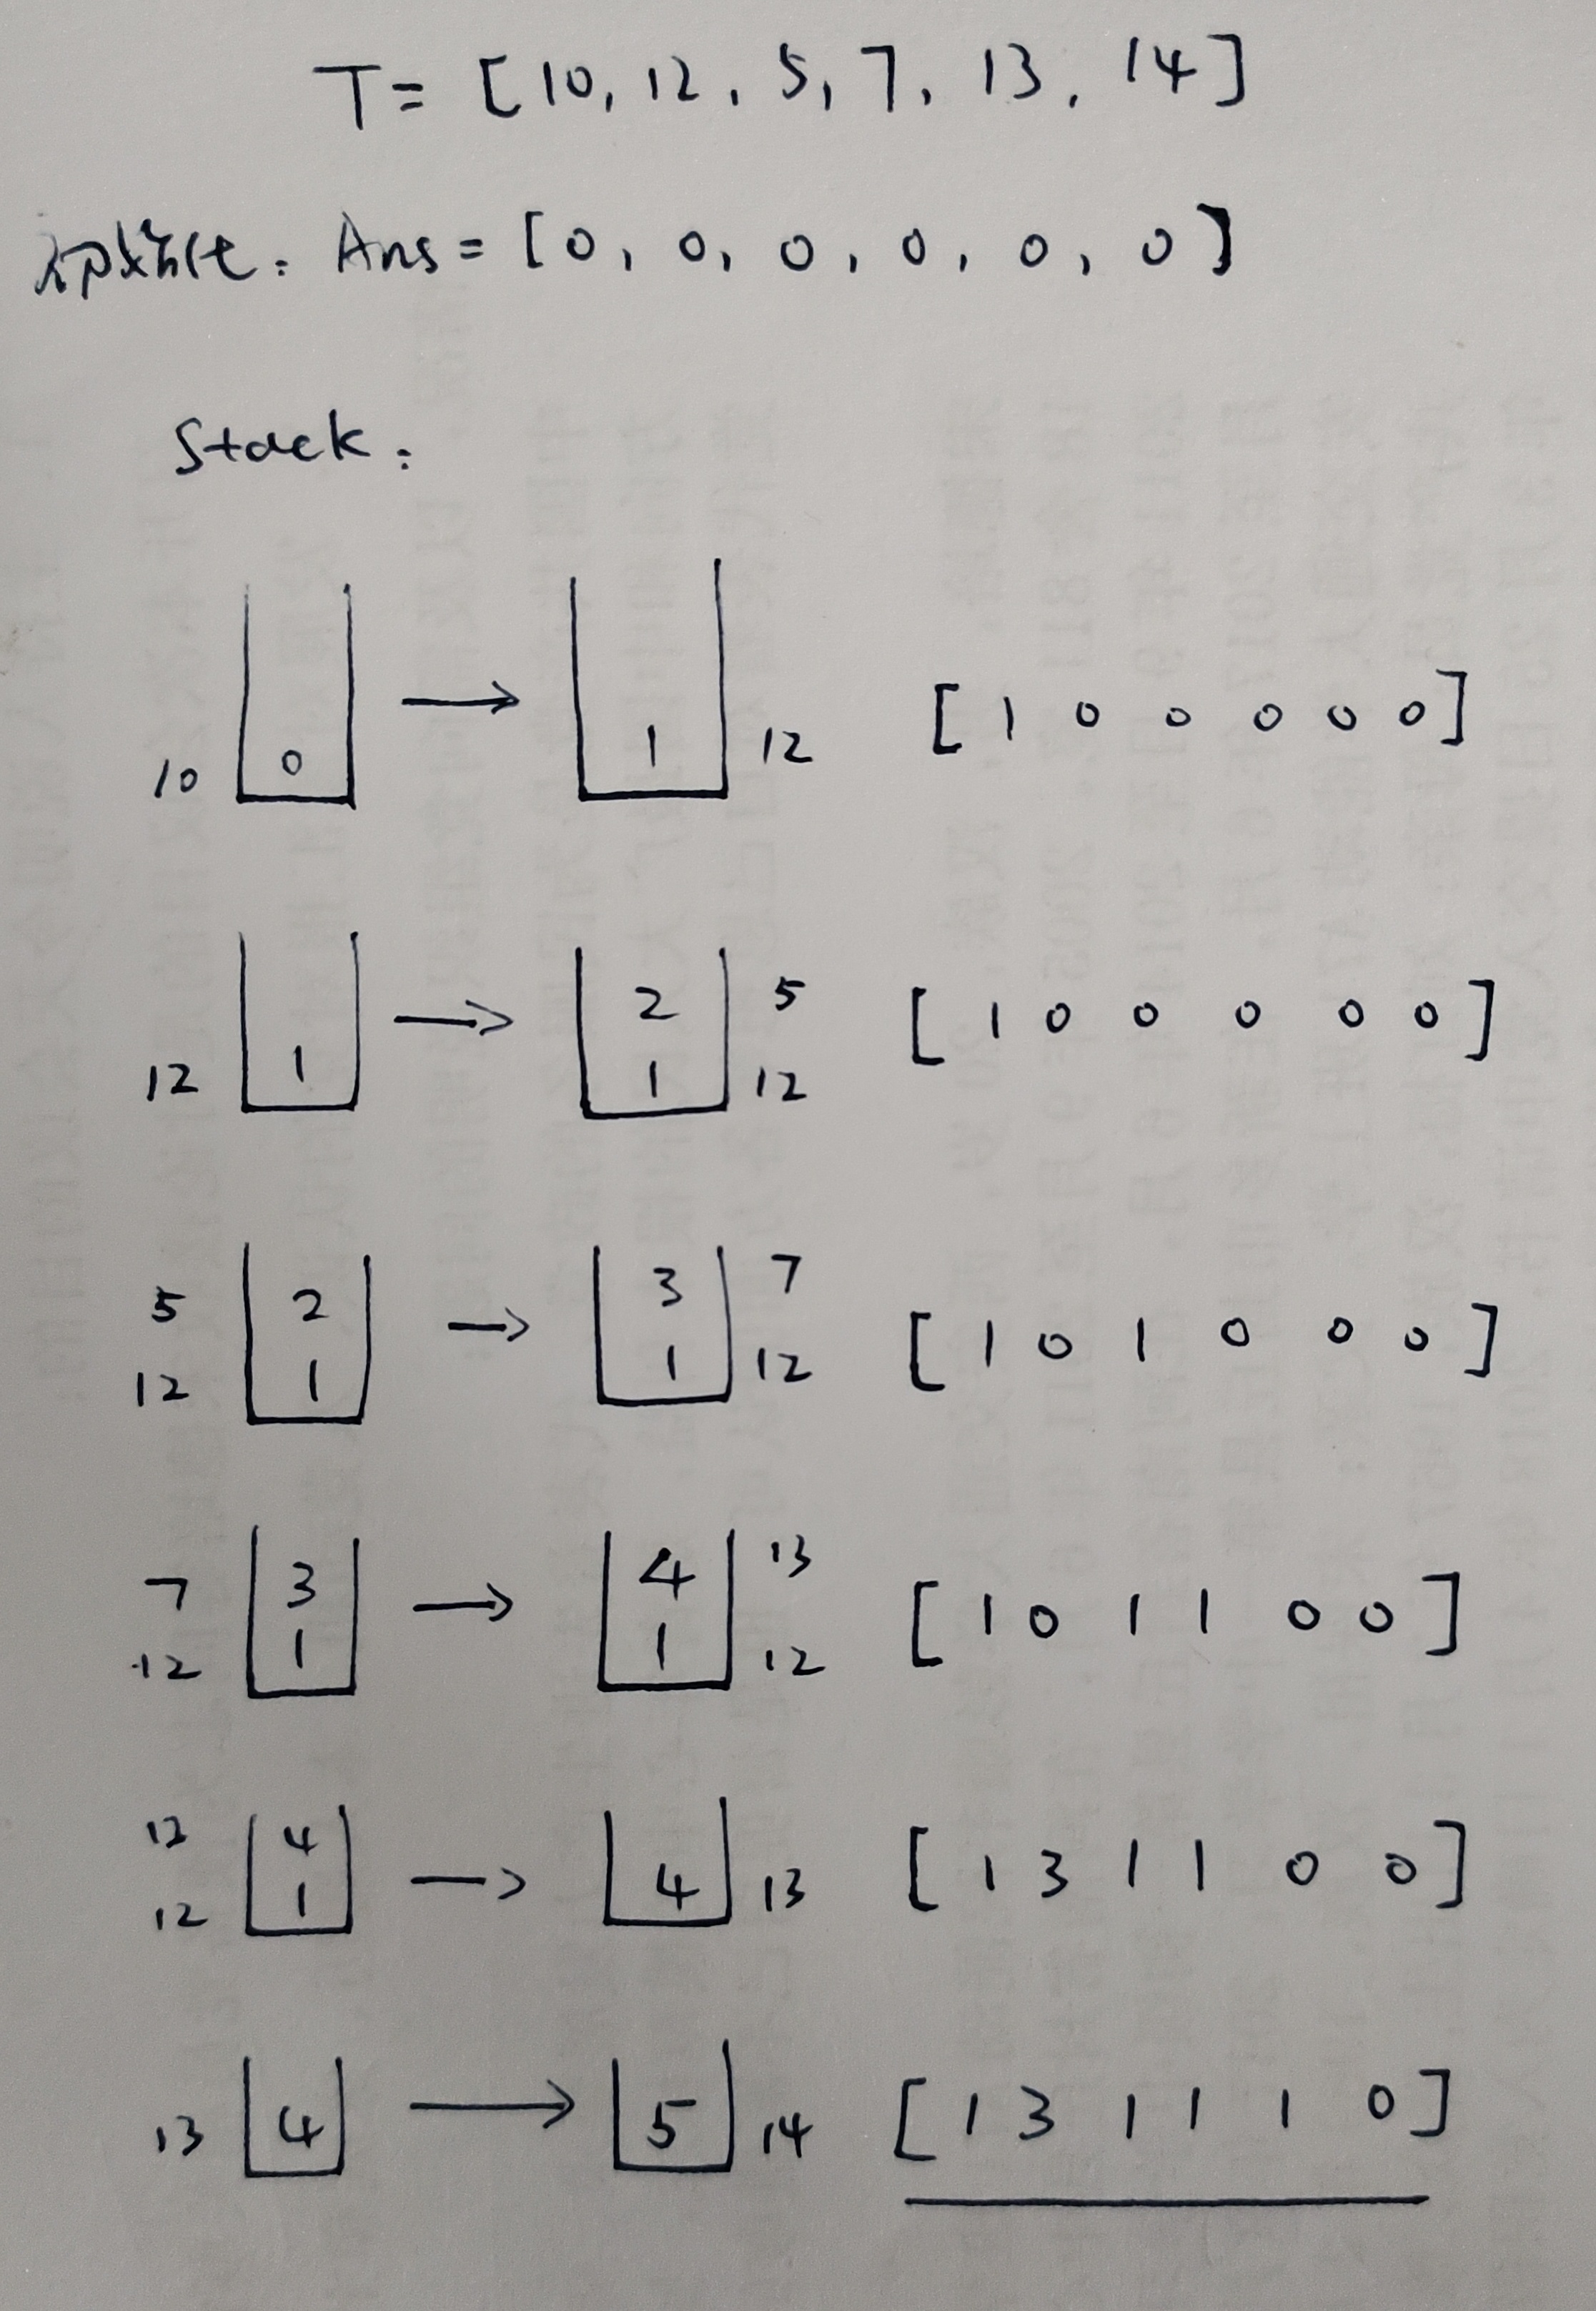 T = [10, 12, 5, 7, 13, 14]
初始化: Ans = [0, 0, 0, 0, 0, 0]
Stack:
10 0 → 1 12 [1 0 0 0 0 0]
2 5
12 1 → 1 12 [1 0 0 0 0 0]
5 2 → 3 7
12 1 1 12 [1 0 1 0 0 0]
7 3 → 4 13
12 1 1 12 [1 0 1 1 0 0]
13 4
12 1 → 4 13 [1 3 1 1 0 0]
13 4 → 5 14 [1 3 1 1 1 0]